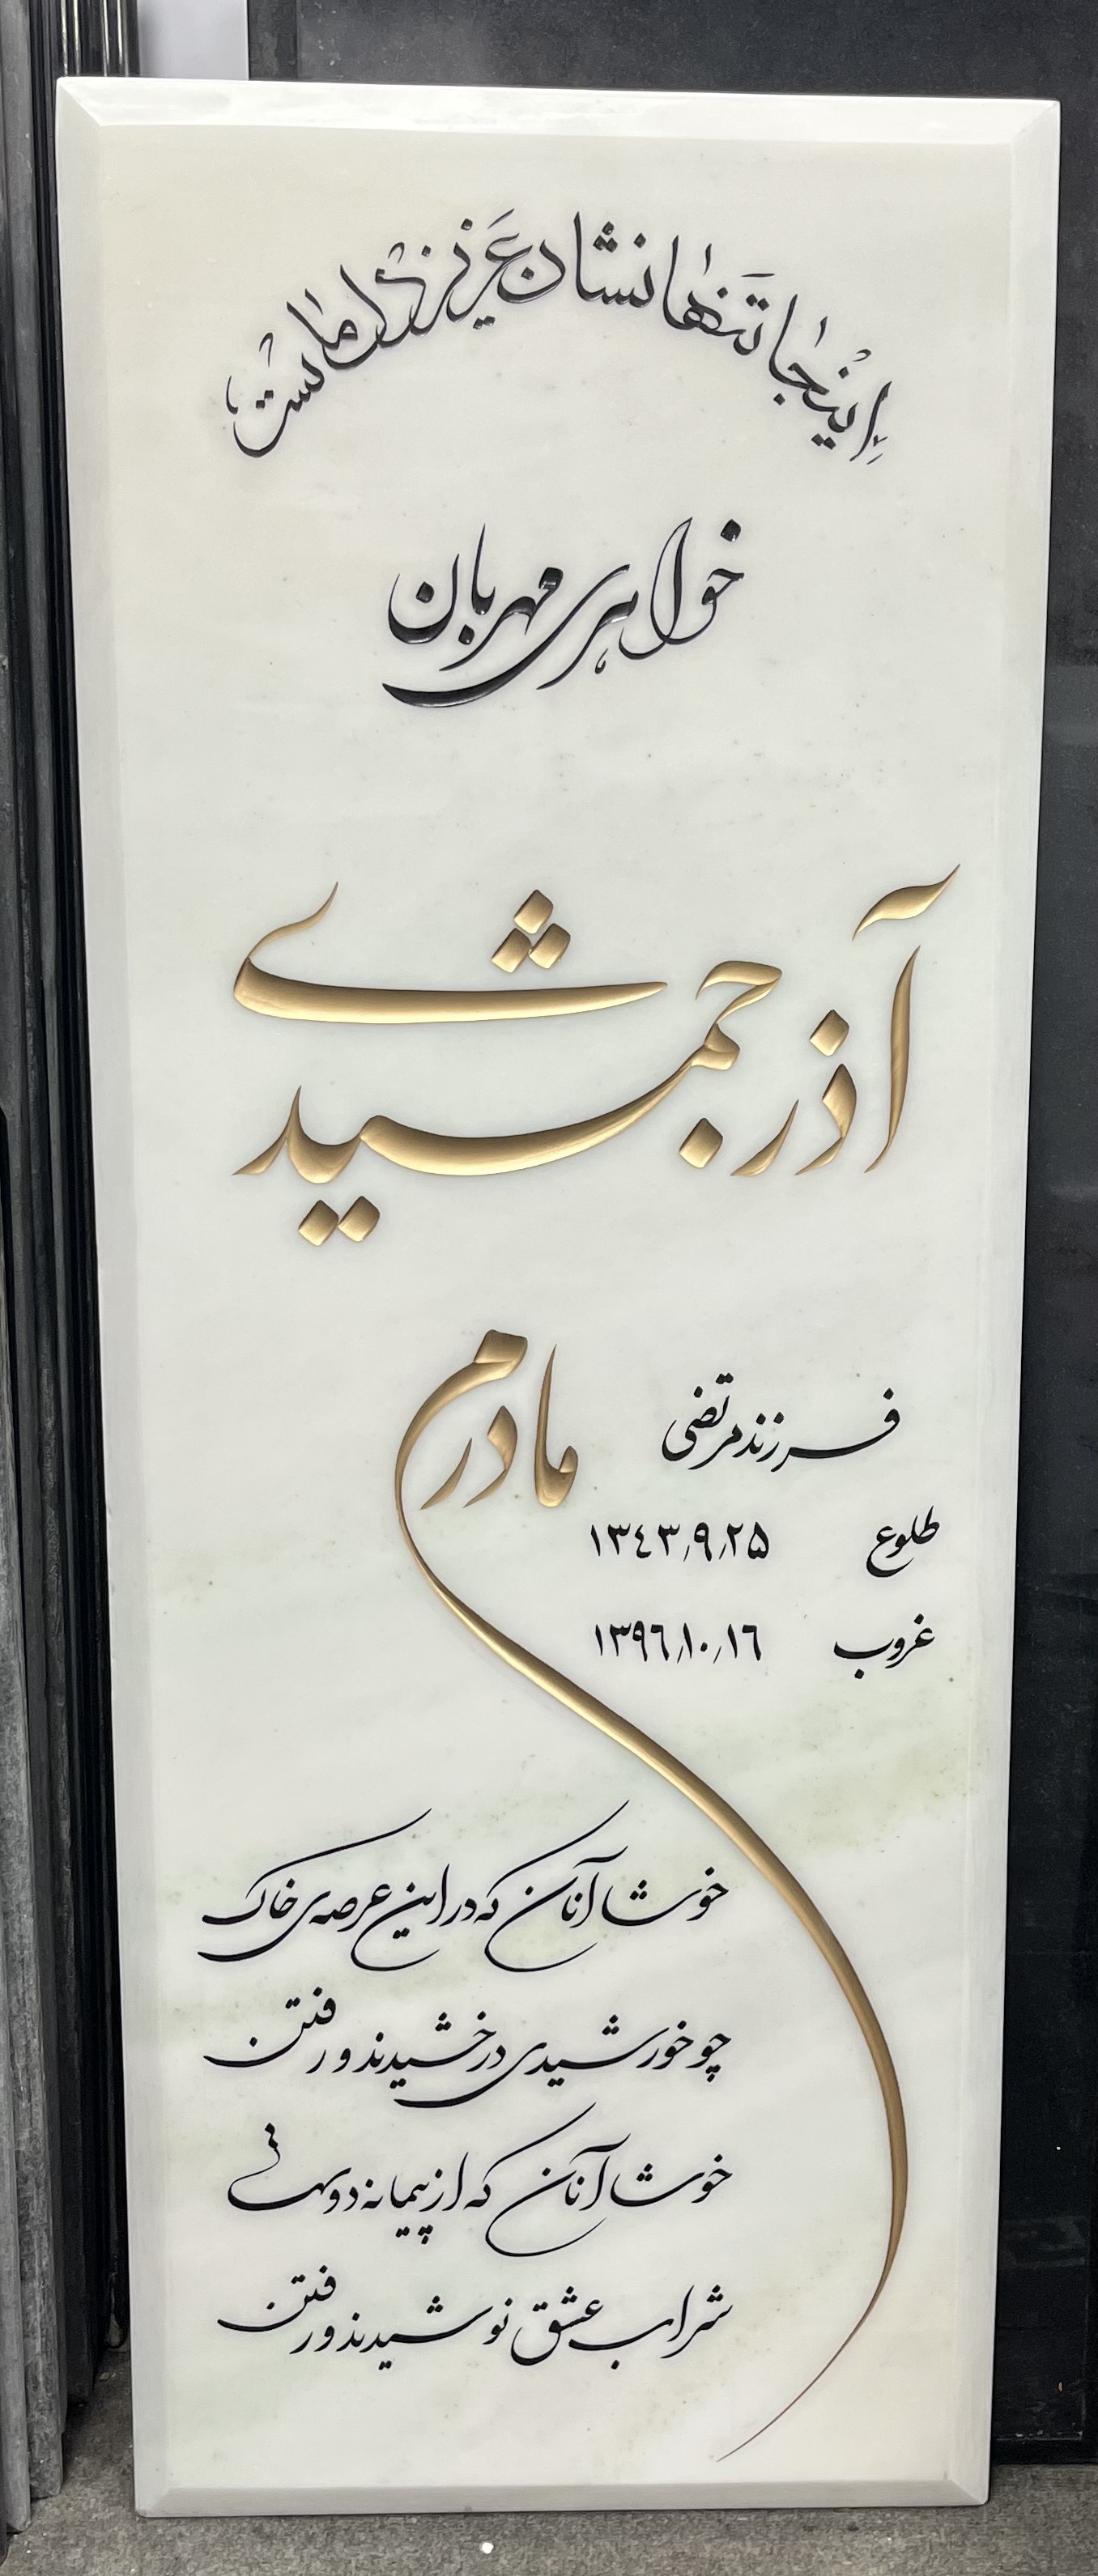 اینجا تنها نشان عزیز دل ماست
خواهری مهربان
آذر جمشیدی
مادرم
فرزند مرتضی
طلوع ۱۳٤۳٫۹٫۲۵
غروب ۱۳۹٦٫۱۰٫۱٦
خوشا آنان که در این عرصه‌ی خاک
چو خورشیدی درخشیدند و رفتن
خوشا آنان که از پیمانه دوستی
شراب عشق نوشیدند و رفتن